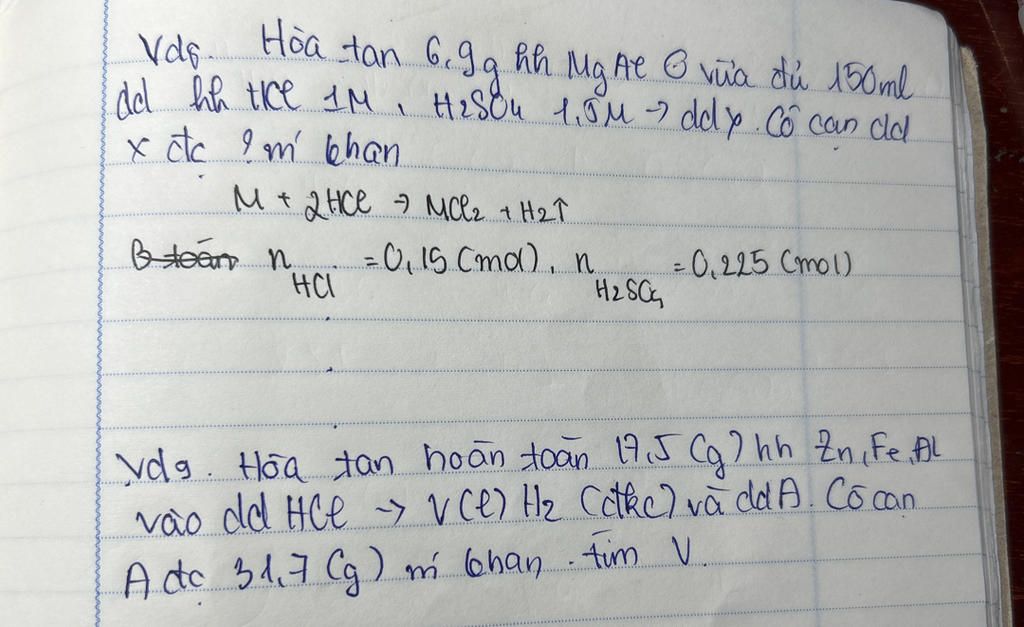 Vd8. Hòa tan 6,9g hh Mg Al ⊝ vừa đủ 150ml
dd hh HCl 1M, H2SO4 1,5M → dd x. Cô cạn dd
x đc ? m' khan
M + 2HCl → MCl2 + H2↑
B toàn n HCl = 0,15 (mol), n H2SO4 = 0,225 (mol)
Vd9. Hòa tan hoàn toàn 17,5 (g) hh Zn, Fe, Al
vào dd HCl → V(l) H2 (đkc) và dd A. Cô cạn
A đc 31,7 (g) m' khan. tìm V.